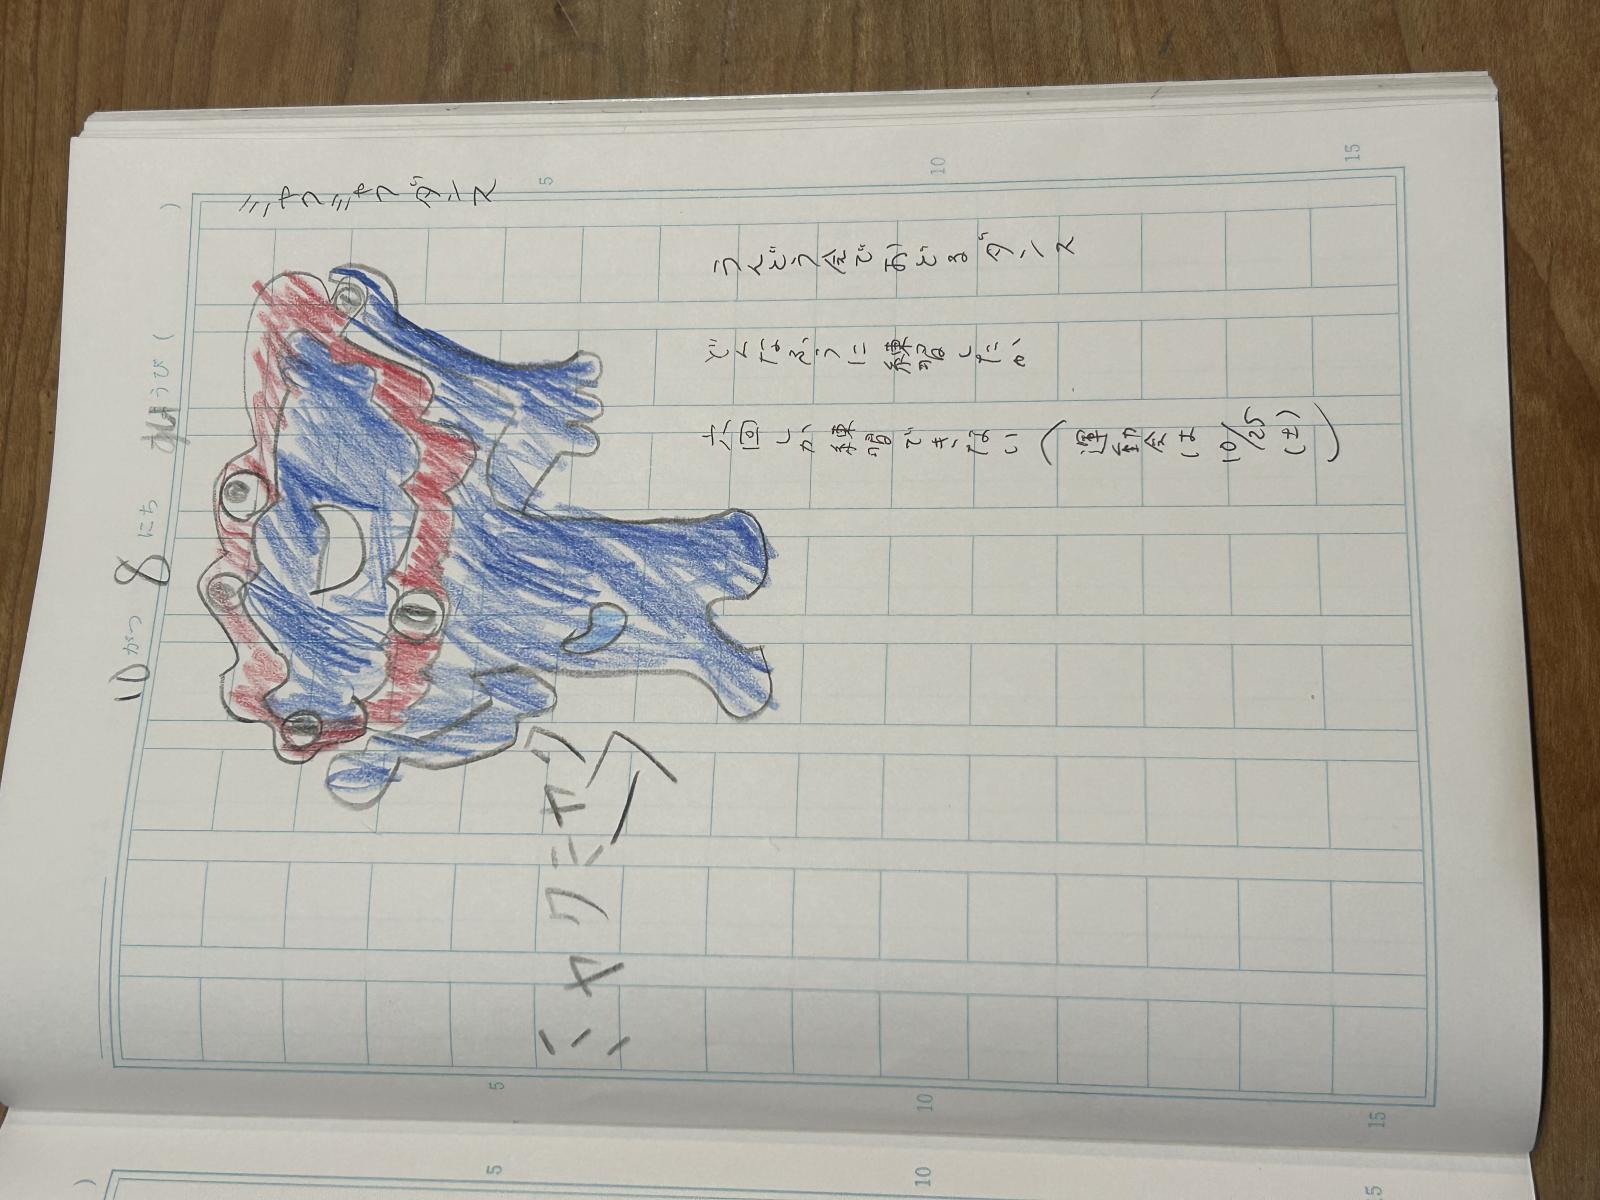 10がつ 8にち ようび ( )
ミャクミャクダンス
うんどう会でおどるダンス
どんなふうに練習したか
六回しか練習できない(運動会は10/25(土))
ミャクミャク
5
10
15
5
10
15
5
10
15